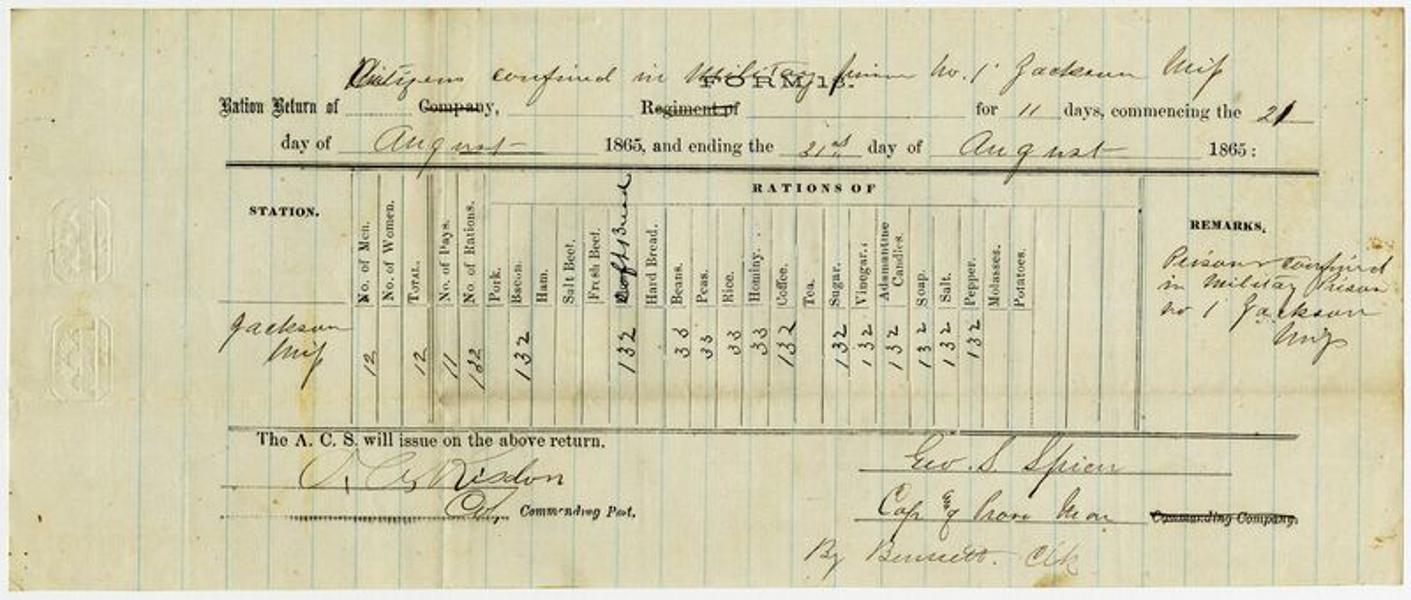 Citizens confined in Military prison No. 1 Jackson Miſs
FORM 13.
Ration Return of Company, Regiment of for 11 days, commencing the 21
day of August 1865, and ending the 31st day of August 1865:
RATIONS OF
STATION. No. of Men. No. of Women. TOTAL. No. of Days. No. of Rations. Pork. Bacon. Ham. Salt Beef. Fresh Beef. Soft Bread Hard Bread. Beans. Peas. Rice. Hominy. Coffee. Tea. Sugar. Vinegar. Adamantine Candles. Soap. Salt. Pepper. Molasses. Potatoes. REMARKS.
Jackson Miſs 12 12 11 132 132 132 33 33 33 33 132 132 132 132 132 132 132
Prisoners confined
in Military Prison
No 1 Jackson
Miſs
The A. C. S. will issue on the above return.
Risdon
Col, Commanding Post.
Geo. S. Spicer
Cap & Provo Mar Commanding Company.
By Bennett. Clk